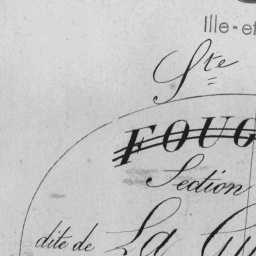 Ille-et
Ste
FOUG
Section
dite de La Gu